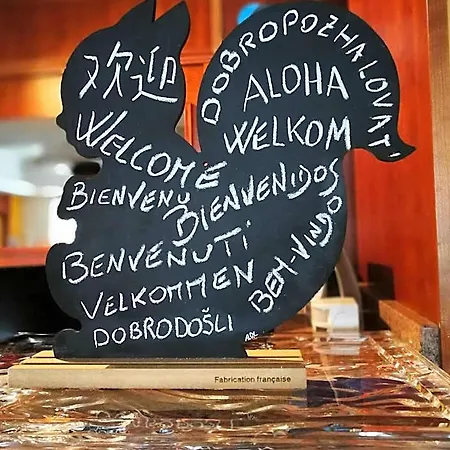 欢迎
WELCOME
BIENVENU
BENVENUTI
VELKOMMEN
DOBRODOŠLI
DOBROPOZHALOVATI
ALOHA
WELKOM
BIENVENIDOS
BEM-VINDO
Fabrication française